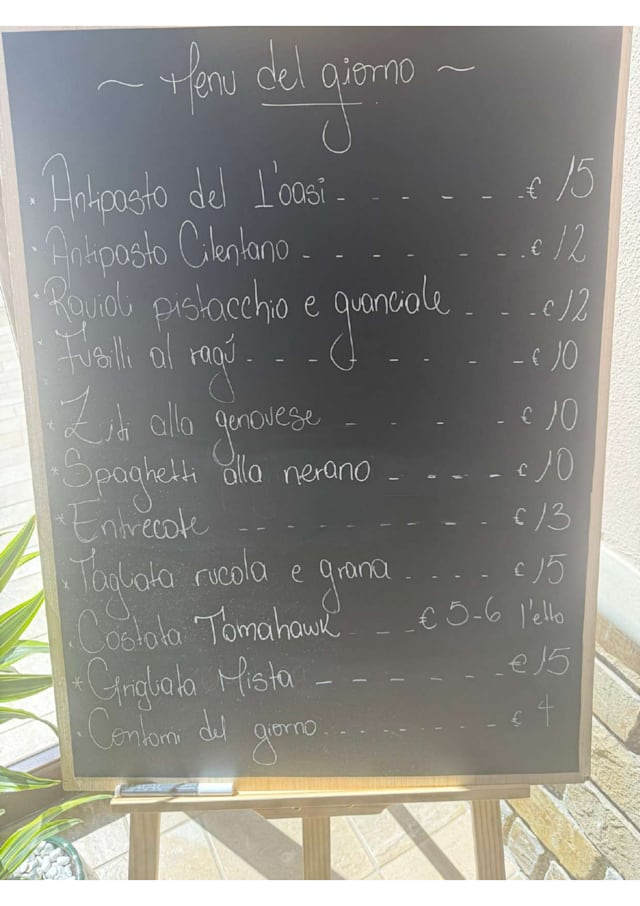 ~ Menu del giorno ~
* Antipasto del L'oasi - - - - - - € 15
* Antipasto Cilentano - - - - - - - € 12
* Ravioli pistacchio e guanciale - - - € 12
* Fusilli al ragú - - - - - - - - € 10
* Ziti alla genovese - - - - € 10
* Spaghetti alla nerano - - - - - € 10
* Entrecote - - - - - - - - - - € 13
* Tagliata rucola e grana - - - - € 15
* Costata Tomahawk - - - € 5-6 l'etto
* Grigliata Mista - - - - - - - € 15
* Contorni del giorno - - - - - - - - € 4